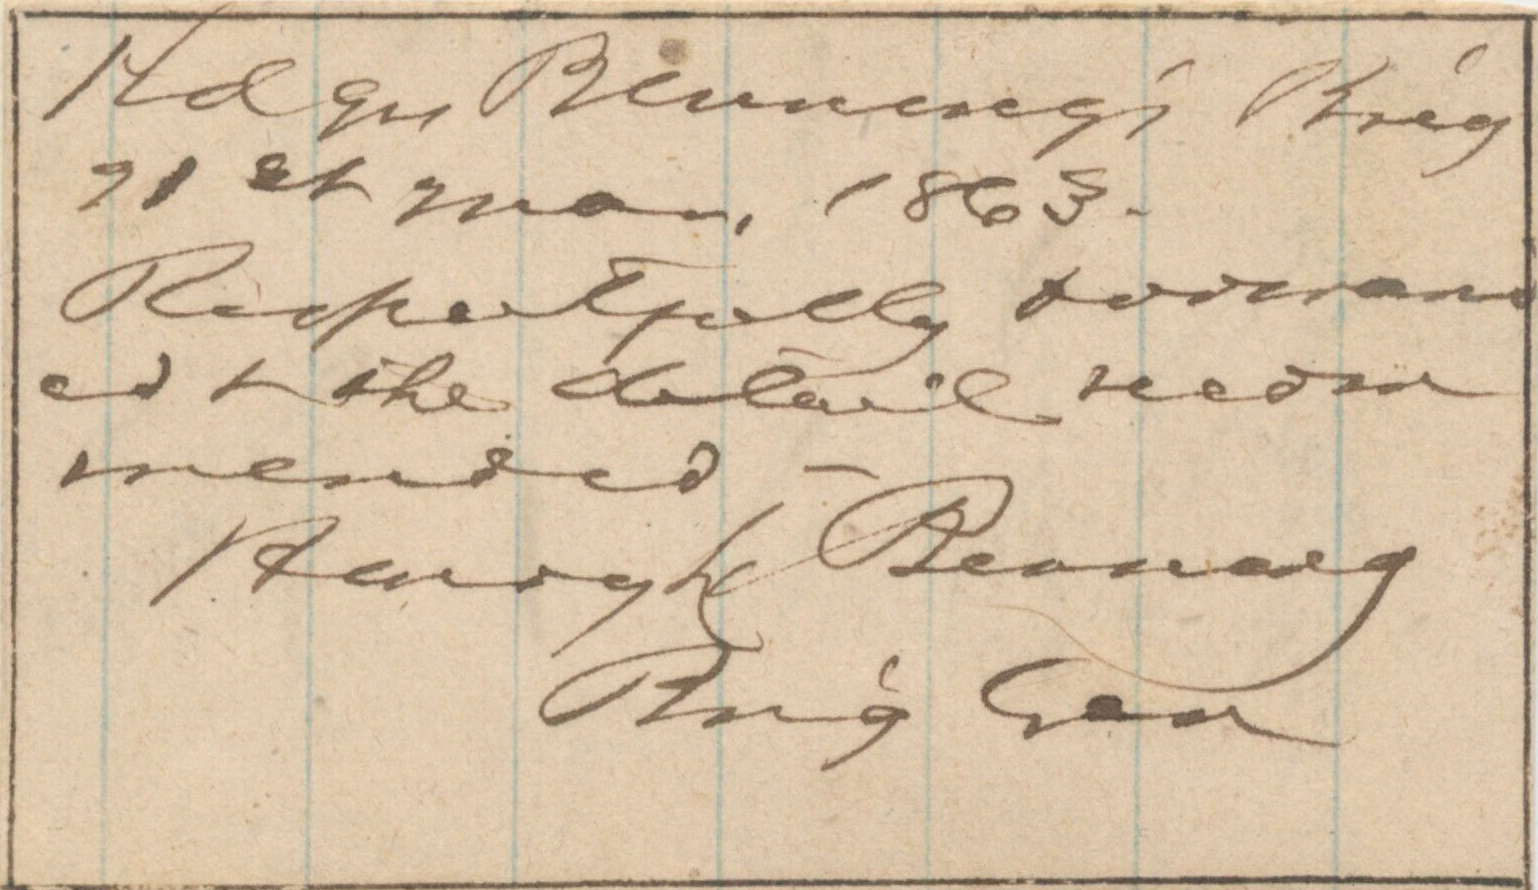 Hdqrs Benning's Brig
21st Mar, 1863.
Respectfully forward
ed & the detail recom
mended —
Henry L Benning
Brig Gen